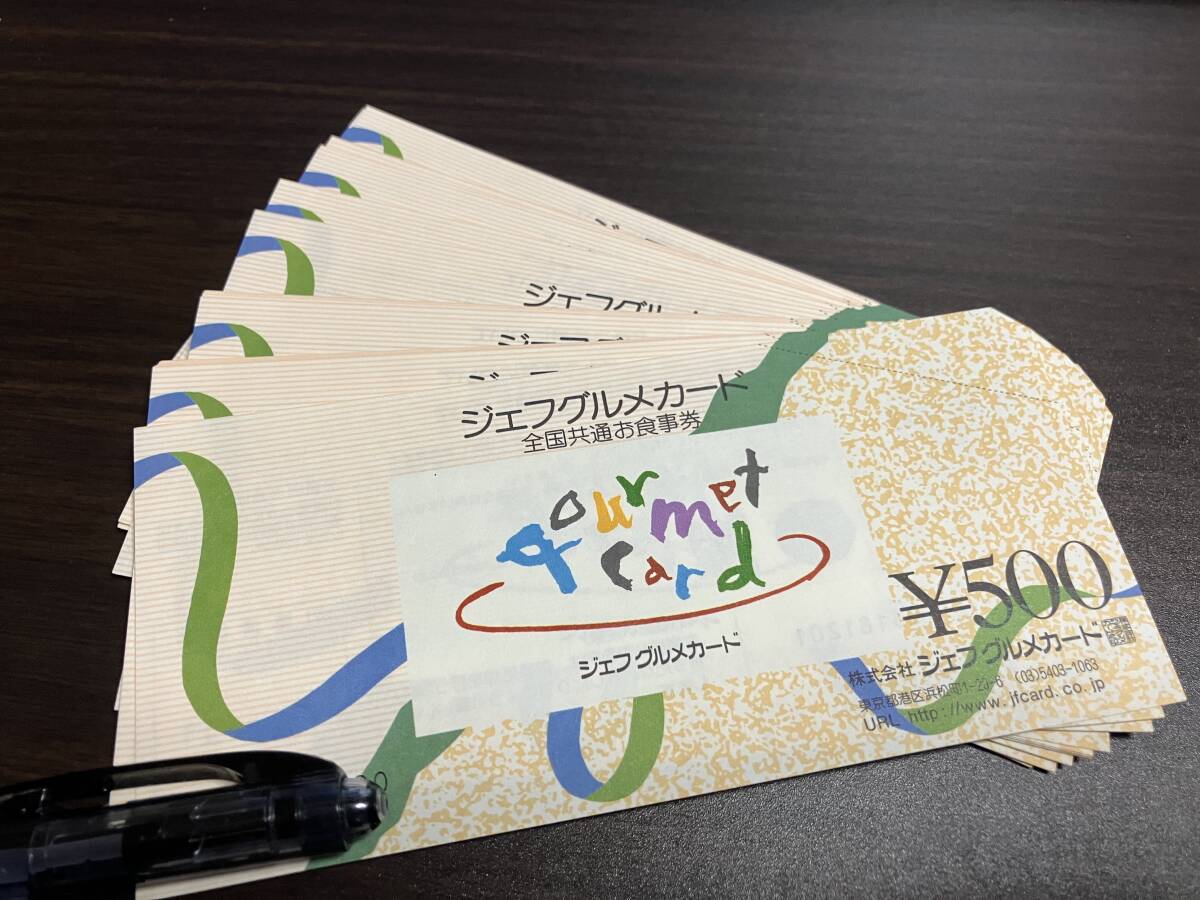 ジェフグルメカード
ジェフグルメカード
全国共通お食事券
gourmet
card
ジェフグルメカード
¥500
株式会社 ジェフグルメカード
東京都港区浜松町1-29-6 (03)5403-1063
URL http://www.jfcard.co.jp